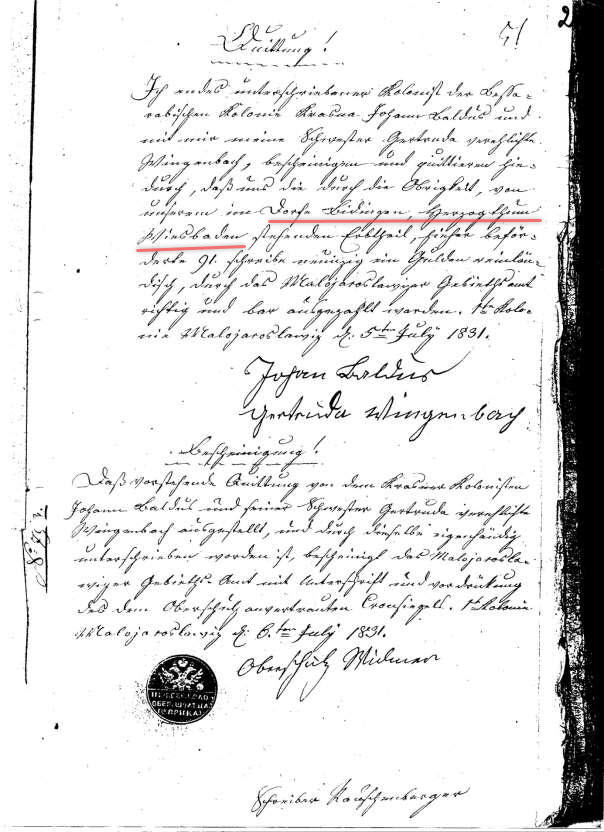 2
51
Quittung!
Ich endes unterschriebener Kolonist der Bessa-
rabischen Kolonie Krasna Johann Baldus und
mit mir meine Schwester Gertruda verehlichte
Wingenbach, bescheinigen und quittieren hie-
durch, daß uns die durch die Obrigkeit, von
unserem im Dorfe Bidingen, Herzogthum
Wiesbaden stehenden Erbtheil, hieher beför-
derte 91. schreibe neunzig ein Gulden reinlän-
disch, durch das Malojaroslawezer Gebiethsamt
richtig und bar ausgezahlt worden. 1te Kolo-
nie Malojaroslawez d: 5ten July 1831.
Johan Baldus
Gertruda Wingenbach
Bescheinigung!
Daß vorstehende Quittung von dem Krasner Kolonisten
Johann Baldus und seiner Schwester Gertruda verehlichte
Wingenbach ausgestellt, und durch dieselbe eigenhändig
unterschrieben worden ist, bescheinigt das Malojarosla-
wezer Gebieths Amt mit Unterschrift und vordrückung
des dem Oberschulz anvertrauten Cronsiegels. 1te Kolonie
Malojaroslawez d: 6ten July 1831.
Oberschulz Widmer
Schreiber Rauschenberger